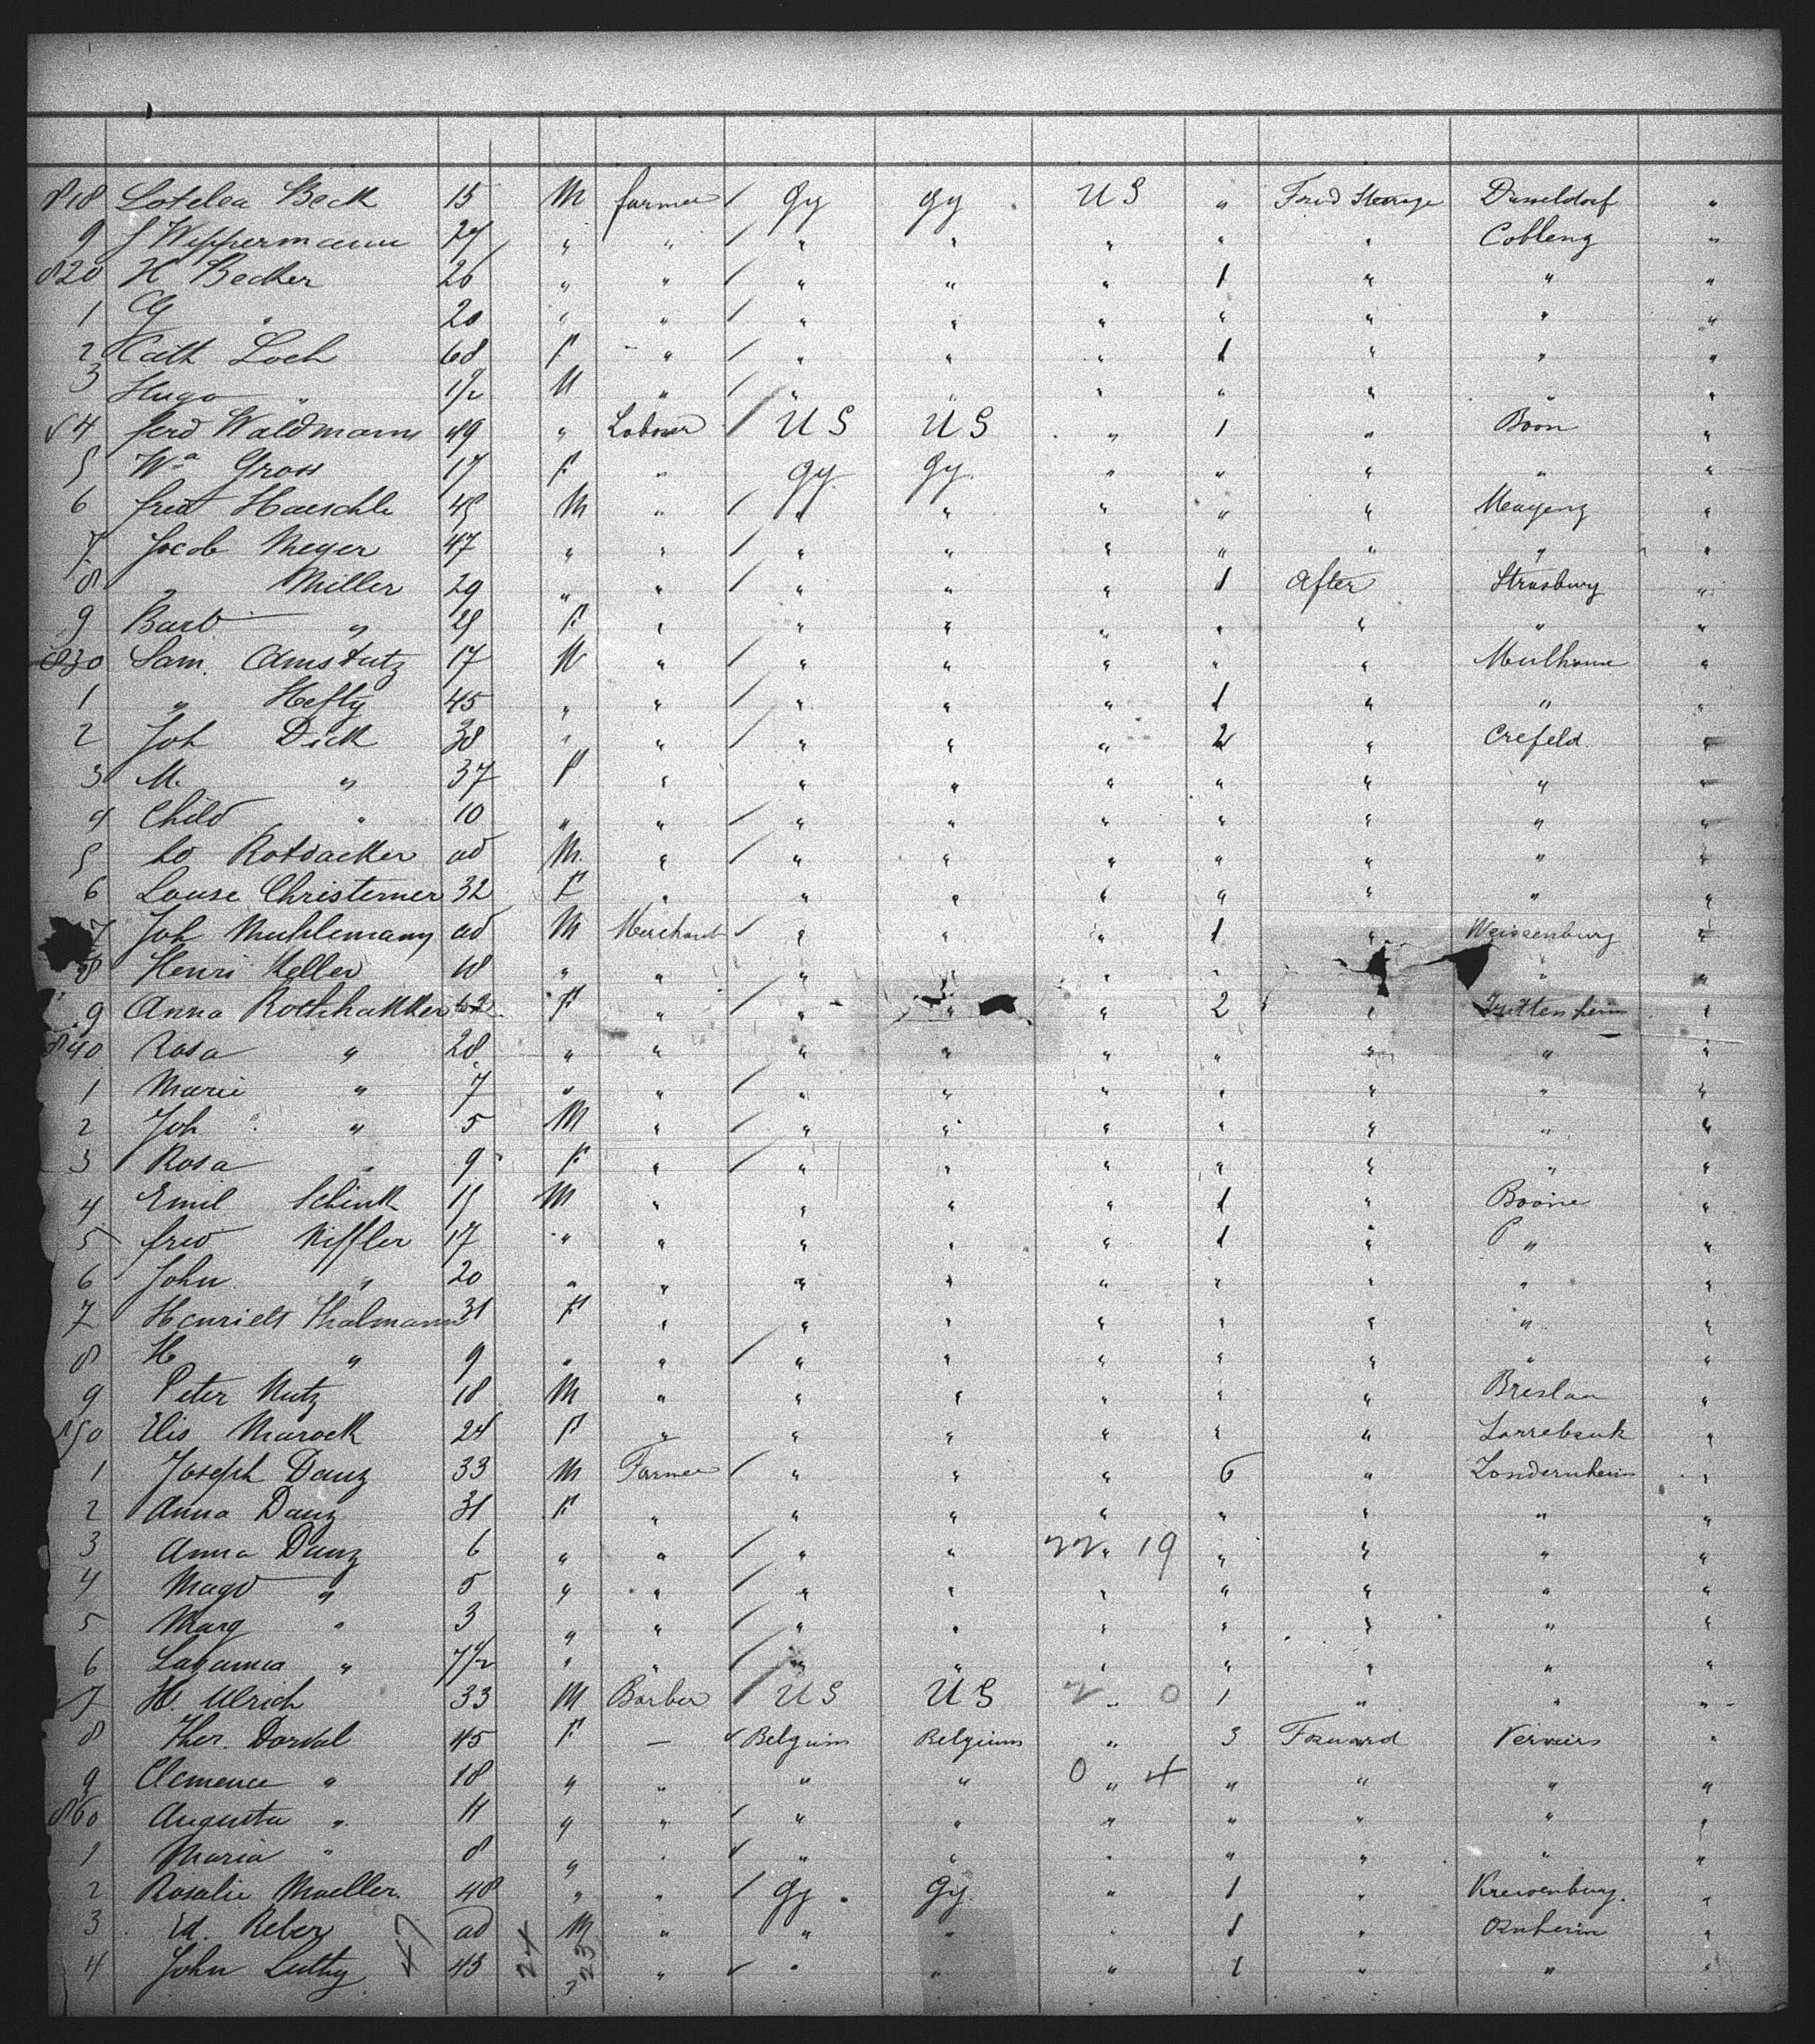 818 Beck 15 M farmer / Gy Gy U S " Ford Steerage Dusseldorf "
9 J Wippermann 27 " " / " " " " " Coblenz "
820 H Becker 26 " " / " " " 1 " " "
1 G " 20 " " / " " " " " " "
2 Cath Loch 68 F " / " " " 1 " " "
3 Hugo " 1/2 M " / " " " " " " "
4 Ferd Waldmann 49 " Laborer / U S U S " 1 " Bonn "
5 Wa Gross 17 F " Gy Gy " " " " "
6 Haeschle 45 M " / " " " " " Mayenz "
7 Jacob Meyer 47 " " / " " " " " " "
8 " Miller 29 " " / " " " 1 After Strasburg "
9 Barb " 29 F " " " " " " " "
830 Sam. Amstutz 17 M " / " " " " " Mulhouse "
1 " Hefty 45 " " / " " " 1 " " "
2 Joh Dick 38 " " / " " " 2 " Crefeld "
3 M. " 37 F " " " " " " " "
4 Child " 10 " " / " " " " " " "
5 Rotdacker ad M. " / " " " " " " "
6 Louse Christener 32 F " " " " " " " "
7 Joh Muhlemann ad M Merchant / " " " 1 " Weissenburg "
8 Henri Keller 18 " " " " " " " " "
9 Anna Rothhakker 62 F " / " " " 2 " "
840 Rosa " 28 " " " " " " " " "
1 Marie " 7 " " / " " " " " " "
2 Joh " 5 M " / " " " " " " "
3 Rosa " 9 F " / " " " " " " "
4 Emil Schenk 15 M " " " " 1 " "
5 Fred Niffler 17 " " " " " 1 " "
6 John " 20 " " " " " " " " "
7 Henriett Thalmann 31 F " " " " " " " "
8 H " 9 " " / " " " " " " "
9 Peter Nutz 18 M " " " " " " Breslau "
850 Elis Marock 24 F " " " " " "
1 Joseph Danz 33 M Farmer / " " " 6 " Zondernheim "
2 Anna Danz 31 F " " " " " " " "
3 Anna Danz 6 " " / " " 22 " 19 " " " "
4 Magd " 5 " " / " " " " " " "
5 Marg " 3 " " / " " " " " " "
6 " " " / " " " " " " "
7 H. Ulrich 33 M Barber / U S U S 2 " 0 1 " " "
8 Ther. Dorval 45 F — Belgium Belgium " 3 Forward Verviers "
9 Clemence " 18 " " " " 0 " 4 " " " "
860 Augusta " 11 " " / " " " " " " "
1 Maria " 8 " " / " " " " " " "
2 Rosalie Moeller. 48 " " / Gy. Gy. " 1 " "
3 Ed. Reber ad M " " " " 1 " Ornheim "
4 John Luthy 43 " " / " " " 1 " " "
47 24 23